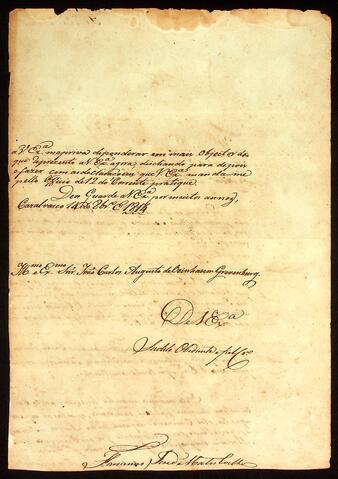 a V Ex.ª me priva de ponderar em mais objectos do
que represento a V Ex.ª agora, deichando para depois
o fazer com as declaraçoens que V Ex.ª manda me
pello Officio de 12 do Corrente pratique.
Deos Guarde a V Ex.ª por muitos annos,
de 8br.º de 1814
Il.mo e Ex.mo Snr. João Carlos Augusto de Oeinhausen Gravenburg.
De V Ex.ª
Subdito Obediente
José de Mattos Coelho